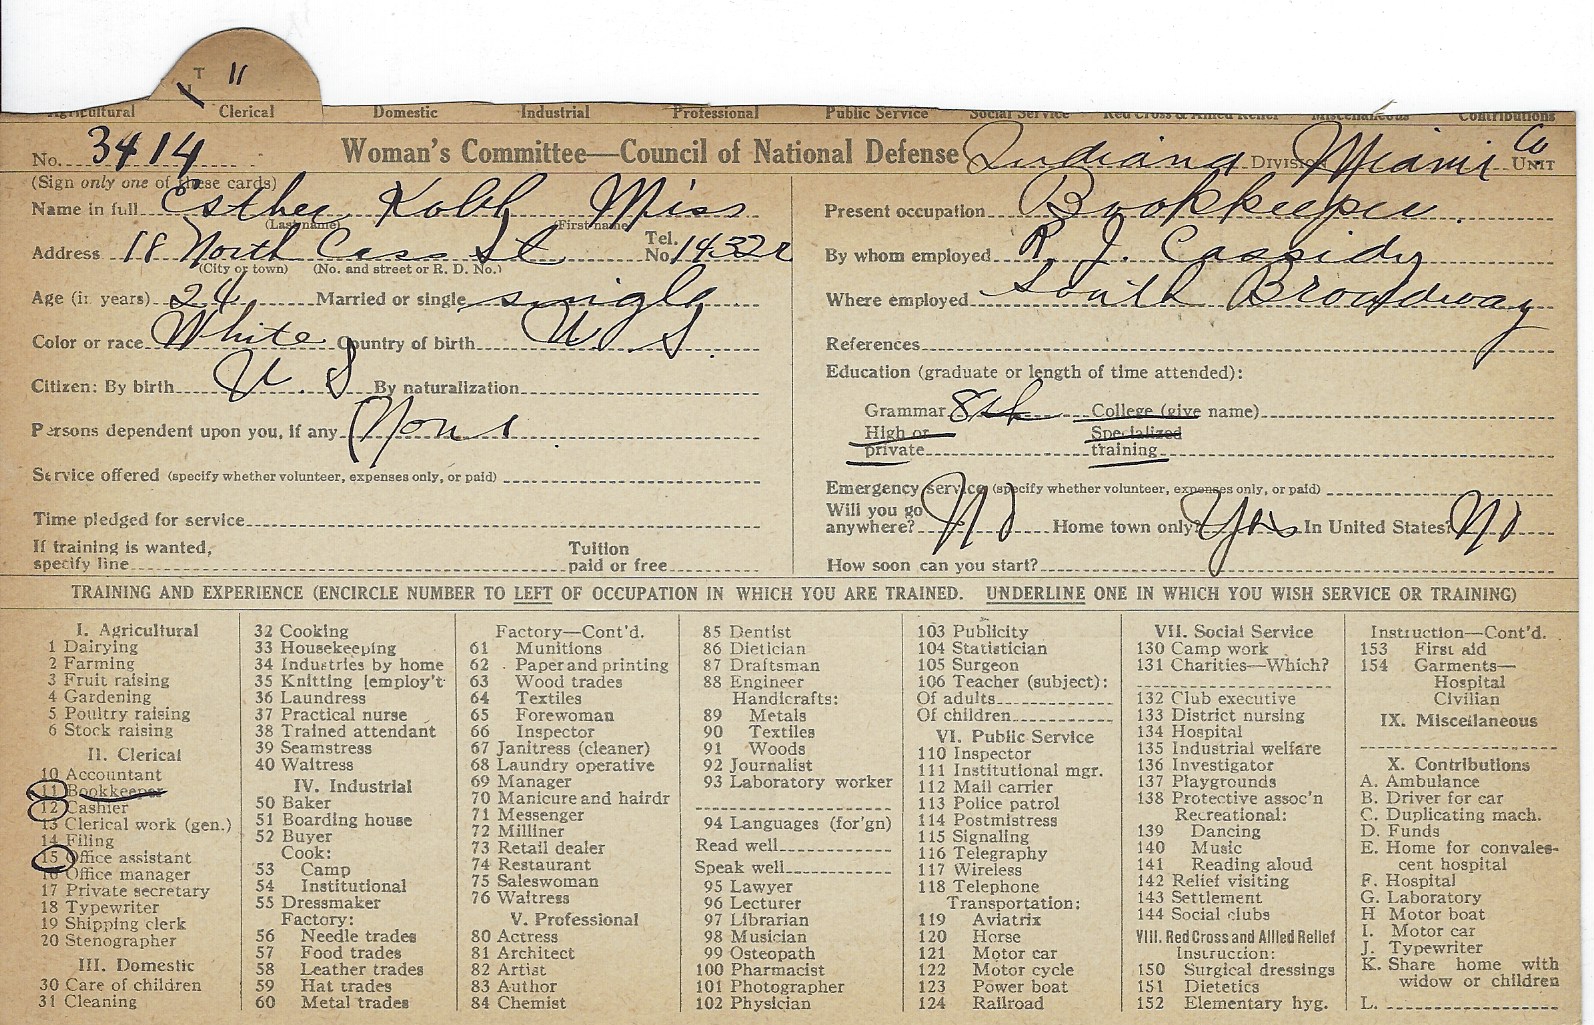 T 11
Agricultural Clerical Domestic Industrial Professional Public Service Social Service Red Cross & Allied Relief Miscellaneous Contributions
No. 3414 Woman's Committee—Council of National Defense Indiana Division Miami Co. Unit
(Sign only one of these cards)
Name in full Esther Kobb Miss
(Last name) (First name)
Address 18 North Cass St Tel. No. 1432r
(City or town) (No. and street or R. D. No.)
Age (in years) 24 Married or single single
Color or race White Country of birth U. S.
Citizen: By birth U. S By naturalization
Persons dependent upon you, if any None
Service offered (specify whether volunteer, expenses only, or paid)
Time pledged for service
If training is wanted, specify line Tuition paid or free
Present occupation Bookkeeper.
By whom employed R. J. Cassidy
Where employed South Broadway
References
Education (graduate or length of time attended):
Grammar 8th College (give name)
High or private Specialized training
Emergency service (specify whether volunteer, expenses only, or paid)
Will you go anywhere? No Home town only? Yes In United States? No
How soon can you start?
TRAINING AND EXPERIENCE (ENCIRCLE NUMBER TO LEFT OF OCCUPATION IN WHICH YOU ARE TRAINED. UNDERLINE ONE IN WHICH YOU WISH SERVICE OR TRAINING)
I. Agricultural
1 Dairying
2 Farming
3 Fruit raising
4 Gardening
5 Poultry raising
6 Stock raising
II. Clerical
10 Accountant
11 Bookkeeper
12 Cashier
13 Clerical work (gen.)
14 Filing
15 Office assistant
16 Office manager
17 Private secretary
18 Typewriter
19 Shipping clerk
20 Stenographer
III. Domestic
30 Care of children
31 Cleaning
32 Cooking
33 Housekeeping
34 Industries by home
35 Knitting [employ't
36 Laundress
37 Practical nurse
38 Trained attendant
39 Seamstress
40 Waitress
IV. Industrial
50 Baker
51 Boarding house
52 Buyer
Cook:
53 Camp
54 Institutional
55 Dressmaker
Factory:
56 Needle trades
57 Food trades
58 Leather trades
59 Hat trades
60 Metal trades
Factory—Cont'd.
61 Munitions
62 Paper and printing
63 Wood trades
64 Textiles
65 Forewoman
66 Inspector
67 Janitress (cleaner)
68 Laundry operative
69 Manager
70 Manicure and hairdr
71 Messenger
72 Milliner
73 Retail dealer
74 Restaurant
75 Saleswoman
76 Waitress
V. Professional
80 Actress
81 Architect
82 Artist
83 Author
84 Chemist
85 Dentist
86 Dietician
87 Draftsman
88 Engineer
Handicrafts:
89 Metals
90 Textiles
91 Woods
92 Journalist
93 Laboratory worker
94 Languages (for'gn)
Read well
Speak well
95 Lawyer
96 Lecturer
97 Librarian
98 Musician
99 Osteopath
100 Pharmacist
101 Photographer
102 Physician
103 Publicity
104 Statistician
105 Surgeon
106 Teacher (subject):
Of adults
Of children
VI. Public Service
110 Inspector
111 Institutional mgr.
112 Mail carrier
113 Police patrol
114 Postmistress
115 Signaling
116 Telegraphy
117 Wireless
118 Telephone
Transportation:
119 Aviatrix
120 Horse
121 Motor car
122 Motor cycle
123 Power boat
124 Railroad
VII. Social Service
130 Camp work
131 Charities—Which?
132 Club executive
133 District nursing
134 Hospital
135 Industrial welfare
136 Investigator
137 Playgrounds
138 Protective assoc'n
Recreational:
139 Dancing
140 Music
141 Reading aloud
142 Relief visiting
143 Settlement
144 Social clubs
VIII. Red Cross and Allied Relief
Instruction:
150 Surgical dressings
151 Dietetics
152 Elementary hyg.
Instruction—Cont'd.
153 First aid
154 Garments—
Hospital
Civilian
IX. Miscellaneous
X. Contributions
A. Ambulance
B. Driver for car
C. Duplicating mach.
D. Funds
E. Home for convales-
cent hospital
F. Hospital
G. Laboratory
H Motor boat
I. Motor car
J. Typewriter
K. Share home with
widow or children
L.